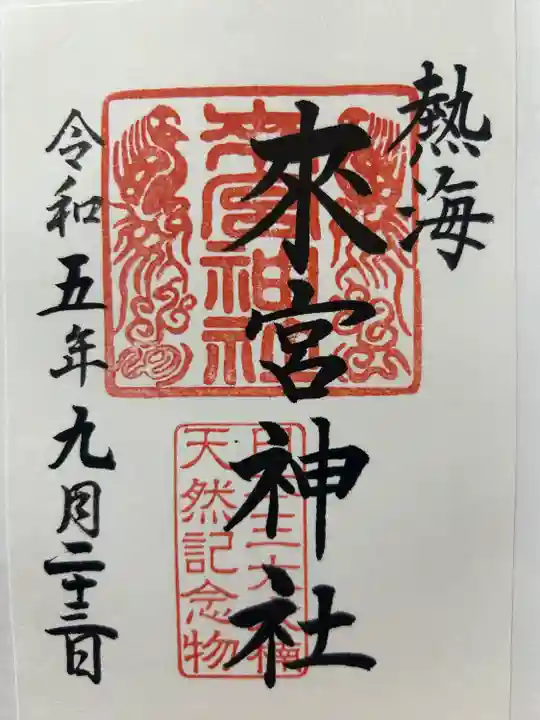 熱海
來宮神社
來宮神社
天然記念物
令和五年九月二十三日